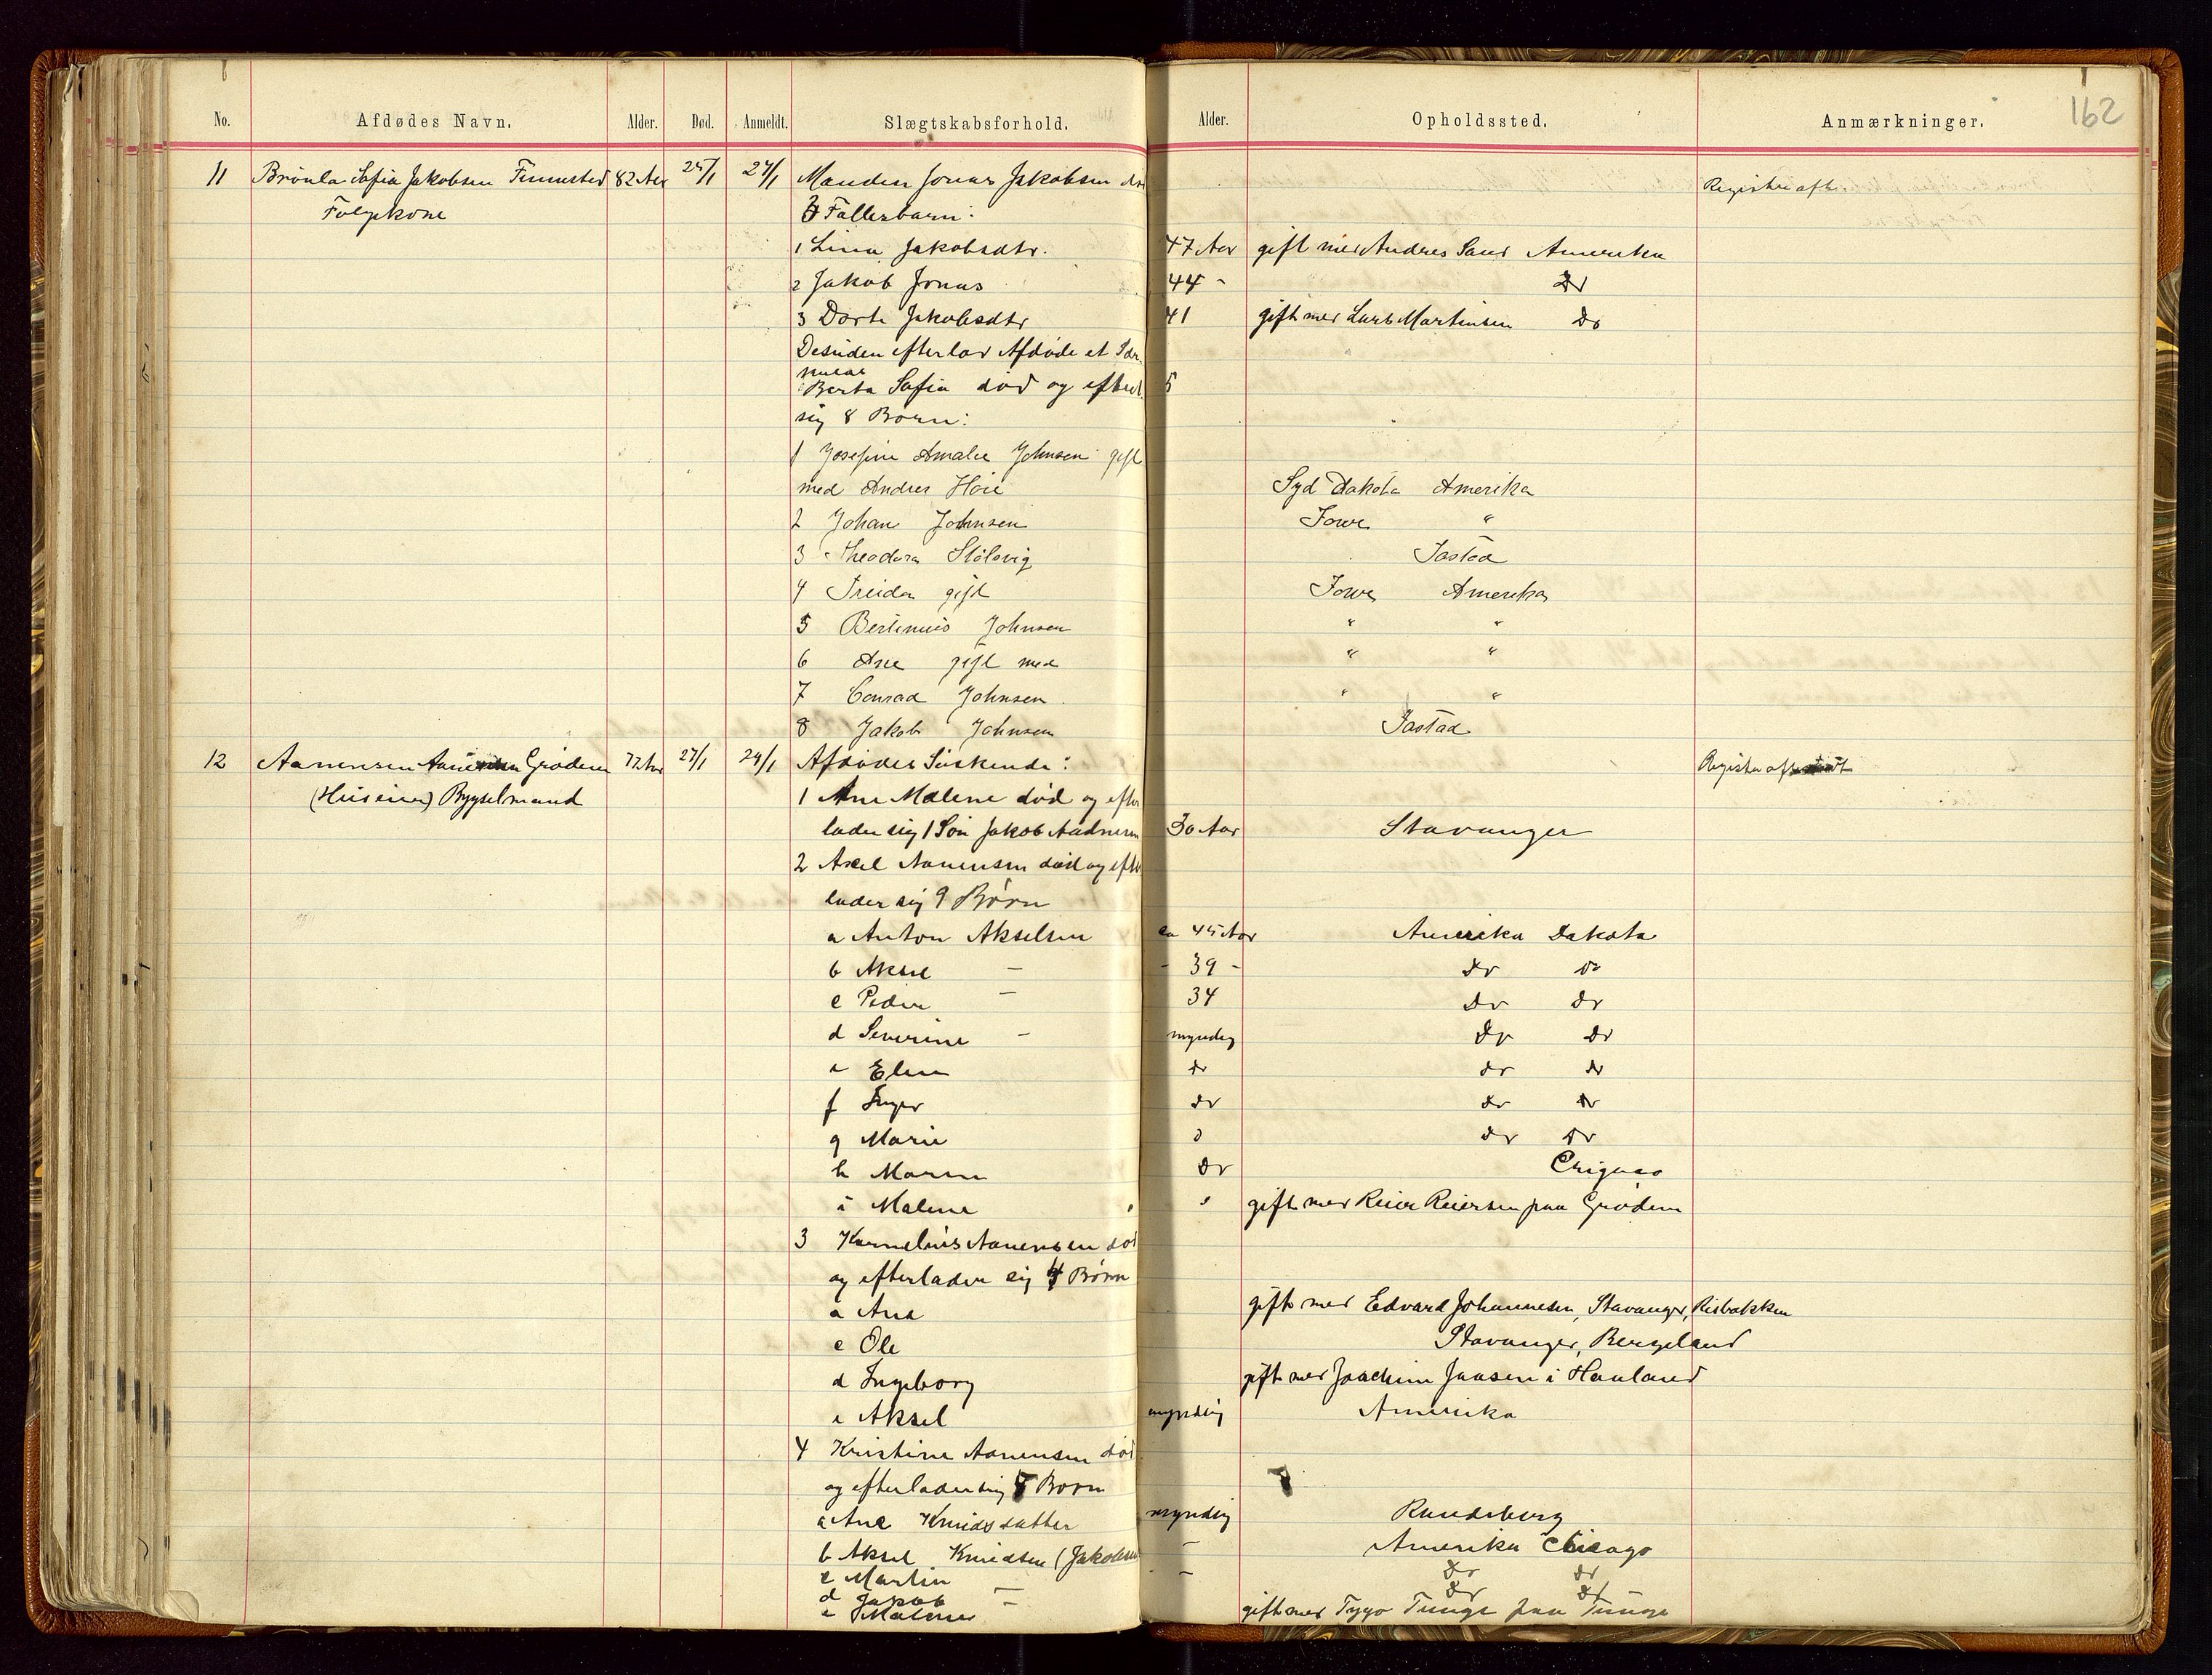 162
No. Afdødes Navn. Alder. Død. Anmeldt. Slægtskabsforhold. Alder. Opholdssted. Anmærkninger.
11 Sofia Jakobsen 82 Aar 25/1 27/1 Manden Jonas Jakobsen Registrer afh.
3 Fællesbarn:
1 Lina Jakobsdtr. 47 Aar gift med Andres Amerika
2 Jakob Jonas 44 - Do
3 Dorte Jakobsdtr 41 gift med Lars Martinsen Do
Desuden efterlod Afdøde et Sær
kuld
Berta Sofia død og efterl.
sig 8 Børn:
1 Josefine Amalie Johnsen gift
med Andres Høie Syd Dakota Amerika
2 Johan Johnsen Iowa "
3 Theodora Stølsvig Jastad
4 gift Iowa Amerika
5 Bertinius Johnsen " "
6 Ane gift med " "
7 Conrad Johnsen " "
8 Jakob Johnsen Jastad
12 Aanensen Grødem 77 Aar 27/1 29/1 Afdødes Søskende: Registr
(Huseier) Bygselmand 1 Ane Malene død og efter
lader sig 1 Søn Jakob Aadnesen 30 Aar Stavanger
2 Axel Aanensen død og efter
lader sig 9 Børn
a Anton Akselsen ca 45 Aar Amerika Dakota
b Aksel — - 39 - Do Do
c Peder — 34 Do Do
d Severine — myndig Do Do
e Elen Do Do Do
f Inger Do Do Do
g Marie Do Do
h Maren Do Chigaco
i Malene gift med Reier Reiersen paa Grødem
3 Kornelius Aanensen død
og efterlader sig 4 Børn
a Ana gift med Edvard Johannesen, Stavanger, Risbakken
c Ole Stavanger, Bergeland
d Ingeborg gift med Joachim Jansen i Hauland
e Aksel myndig Amerika
4 Kristine Aanensen død
og efterlader sig Børn
a Ane Knudsdatter myndig Randeberg
b Aksel Knudsen (Jakobsen — Amerika Chicago
c Martin — Do Do
d Jakob — Do Do
e Malene gift med Tygo Tunge paa Tunge